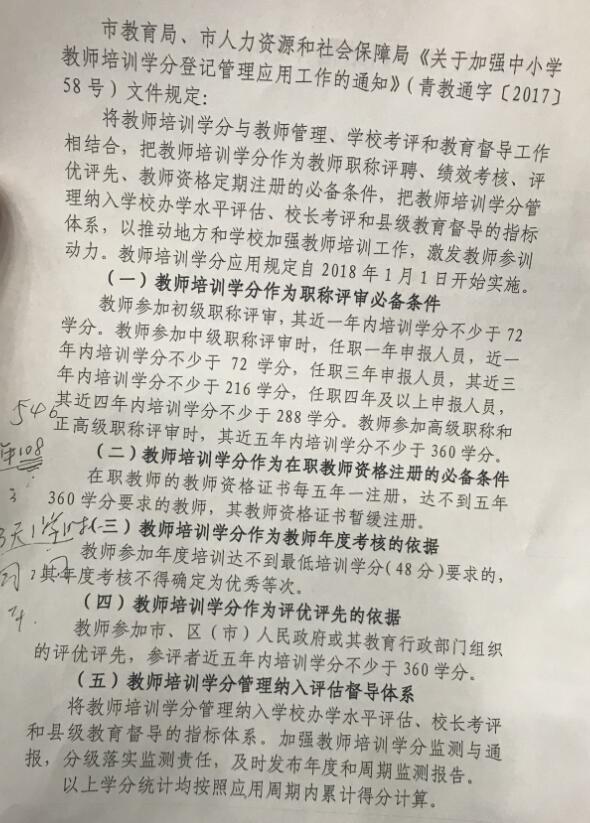 市教育局、市人力资源和社会保障局《关于加强中小学
教师培训学分登记管理应用工作的通知》(青教通字〔2017〕
58 号)文件规定:
将教师培训学分与教师管理、学校考评和教育督导工作
相结合，把教师培训学分作为教师职称评聘、绩效考核、评
优评先、教师资格定期注册的必备条件，把教师培训学分管
理纳入学校办学水平评估、校长考评和县级教育督导的指标
体系，以推动地方和学校加强教师培训工作，激发教师参训
动力。教师培训学分应用规定自 2018 年 1 月 1 日开始实施。
(一)教师培训学分作为职称评审必备条件
教师参加初级职称评审,其近一年内培训学分不少于 72
学分。教师参加中级职称评审时，任职一年申报人员，近一
年内培训学分不少于 72 学分，任职三年申报人员，其近三
年内培训学分不少于 216 学分，任职四年及以上申报人员，
其近四年内培训学分不少于 288 学分。教师参加高级职称和
正高级职称评审时，其近五年内培训学分不少于 360 学分。
(二)教师培训学分作为在职教师资格注册的必备条件
在职教师的教师资格证书每五年一注册，达不到五年
360 学分要求的教师，其教师资格证书暂缓注册。
(三)教师培训学分作为教师年度考核的依据
教师参加年度培训达不到最低培训学分(48 分)要求的，
其年度考核不得确定为优秀等次。
(四)教师培训学分作为评优评先的依据
教师参加市、区(市)人民政府或其教育行政部门组织
的评优评先，参评者近五年内培训学分不少于 360 学分。
(五)教师培训学分管理纳入评估督导体系
将教师培训学分管理纳入学校办学水平评估、校长考评
和县级教育督导的指标体系。加强教师培训学分监测与通
报，分级落实监测责任，及时发布年度和周期监测报告。
以上学分统计均按照应用周期内累计得分计算。
546
年108
3
3天1学时